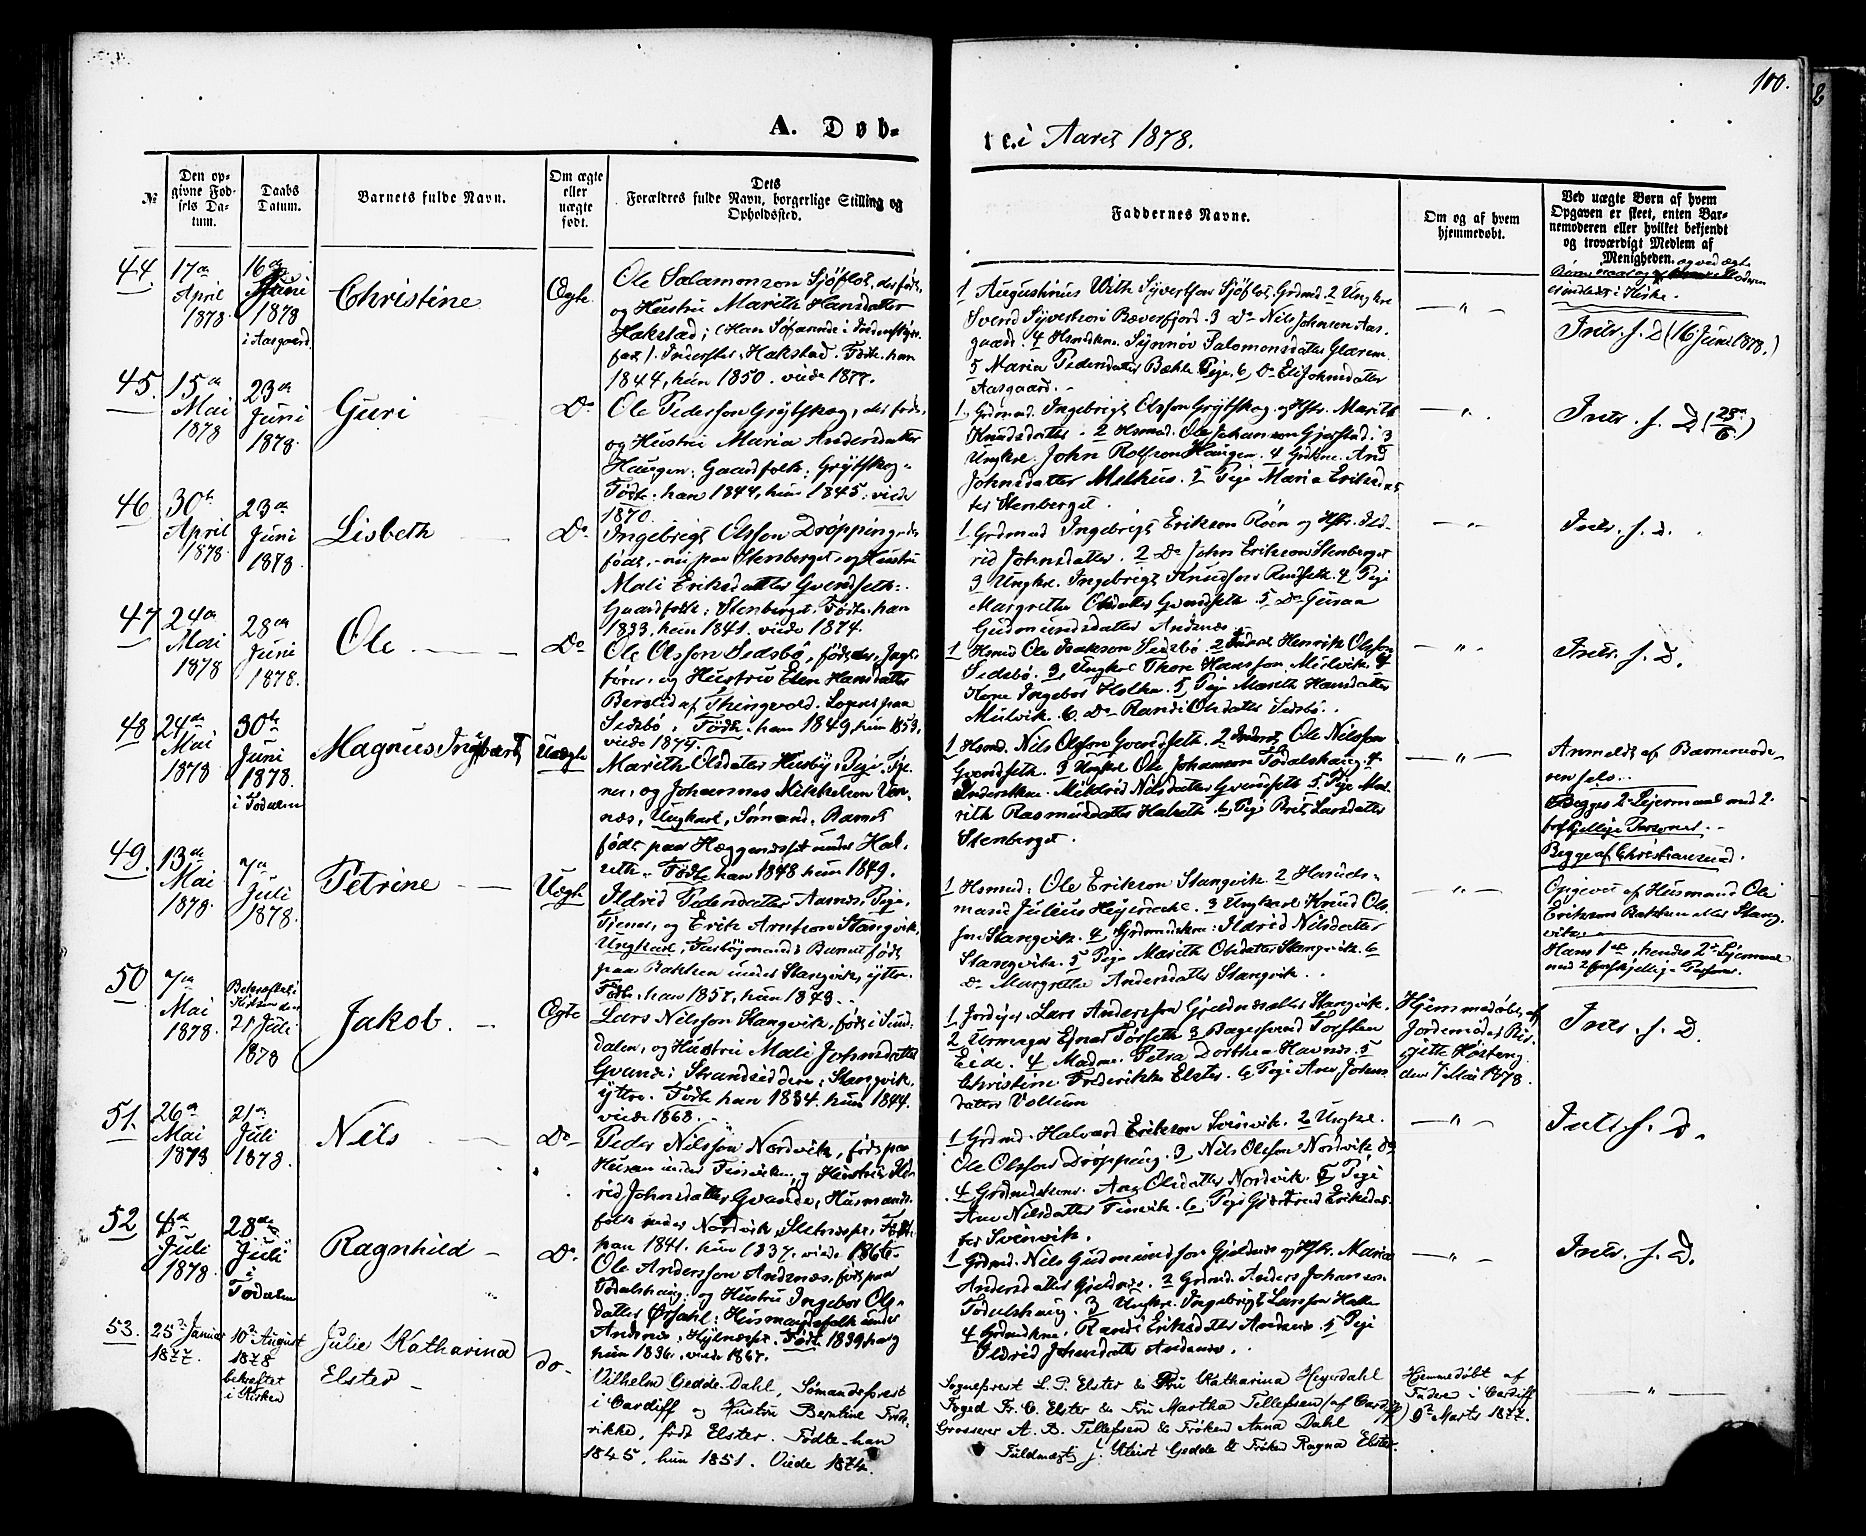 100.
A. Døb-
te i Aaret 1878.
№
Den op-
givne Fød-
sels Da-
tum.
Daabs
Datum.
Barnets fulde Navn.
Om ægte
eller
uægte
født.
Dets
Forældres fulde Navn, borgerlige Stilling og
Opholdssted.
Faddernes Navne.
Om og af hvem
hjemmedøbt.
Ved uægte Børn af hvem
Opgaven er skeet, enten Bar-
nemoderen eller hvilket bekjendt
og troværdigt Medlem af
Menigheden. og ved ægte
44.
17de
April
1878
16de
Juni
1878
i Aasgaard.
Christine
Ægte
Ole Salamonson Sjøflot, der født,
og Hustru Marith Hansdatter
Hakstad; (Han Søfarende i
Inderster, Hakstad. Födte: han
1844, hun 1850. viede 1877.
1 Augustinus With Syvertsen Sjøflot, Grdmd. 2 Ungkre
Svend Syvertsen Bæverfjord. 3 Do Nils Johnsen Aas-
gaard. 4 Synnøv Salomonsdatter Glærem
5 Maria Pedersdatter Bæhle Pige. 6 Do Eli Johnsdatter
Aasgaard. -
— " —
Intr. f. D. (16 Juni 1878.)
45.
15de
Mai
1878
23de
Juni
1878.
Guri
Do
Ole Pederson Grytskog, der født,
og Hustru Maria Andersdatter
Haugen: Gaardfolk: Grytskog -
Födte: han 1844, hun 1845: viede
1870.
1. Grdmd. Ingebrigt Olsson Grytskog og Hstr. Marith
Knudsdatter. 2 Hsmd. Ole Johanson Gjerstad. 3
Ungkre. John Rolfson Haugen. 4 And
Johnsdatter Melhus. 5 Pige Maria Eriksdat-
ter Stenberget.
— " —
Intr. f. D. (23de/6.)
46
30te
April
1878
23de
Juni
1878.
Lisbeth
Do
Ingebrigt Olsson Drøpping, der
født, - nu paa Stenberget, og Hustru
Mali Eriksdatter Gvendseth:
Gaardfolk: Stenberget. Födte: han
1833, hun 1841. viede 1874.
1. Grdmd Ingebrigt Erikson Røen og Hstr. Ild-
rid Johnsdatter. 2 Do John Erikson Stenberget
3 Ungkre. Ingebrigt Knudson Rødseth. 4 Pige
Margrethe Olsdatter Gvendseth. 5 Do Guraa
Gudmundsdatter Andsnæs.
— " —
Intr. f. D.
47
24de
Mai
1878
28de
Juni
1878.
Ole
Do
Ole Olsson Sedsbø, født der,
og Hustru Elen Hansdatter
af Thingvold.
Sedsbø, Födte: han 1849, hun 1853,
viede 1874.
1 Hsmd Ole Isakson Sedsbø. 2 Henrik Olsson
Sedsbø. 3 Ungkre Thore Hansson Mulvik. 4
Kone Ingebor Holten. 5 Pige Marith Hansdatter
Mulvik. 6. Do Randi Olsdatter Sedsbø.
— " —
Intr. f. D.
48
24de
Mai
1878
30te
Juni
1878.
i Todalen
Magnus Ingbart
Uægte
Marith Olsdatter Husby, Pige, Tje-
ner, og Johannes Mikkelson Von-
næs, Ungkarl, Sømand. Barnet
født paa Hæggenesset under Hal-
seth. Födte han 1848 hun 1849.
1 Hsmd. Nils Olsson Gvendseth. 2 Inderst Ole Nilsson
Gvendseth. 3 Ungkre Ole Johanson Todalshaug. 4
Inderstkne. Mildrid Nilsdatter Gvendseth. 5 Pige Ma-
rith Rasmusdatter Halseth. 6 Pige Brit Larsdatter
Stenberget.
— " —
Anmeldt af Barnemode-
ren selv.
Begges 2. Lejermaal med 2.
forskjellige Personer. -
Begge af Christiansund.
49.
13de
Mai
1878.
7de
Juli
1878.
Petrine
Uægte
Ildrid Pedersdatter Aasnæs, Pige,
Tjener, og Erik Arntson Stangvik,
Ungkarl, Barnet født
paa Bakken under Stangvik, ytre.
Födte: han 1857, hun 1843.
1 Hsmd: Ole Erikson Stangvik. 2 Hands-
mand Julius Heyerdahl. 3 Ungkarl Knud Ols-
son Stangvik. 4 Grdmandskone: Ildrid Nilsdatter
Stangvik. 5 Pige Marith Olsdatter Stangvik. 6
Do Margrethe Andersdatter Stangvik.
— " —
Opgivet af Husmand Ole
Erikson Bakken eller Stang-
vik.
Hans 1ste, hendes 2det Lejermaal
med 2 forskjellige Personer.
50
7de
Mai
1878.
Bekræftet i
Kirken den
21 Juli
1878
Jakob.
Ægte
Lars Nilsson Stangvik, født i Sund-
dalen, og Hustru Mali Johnsdatter
Gvande: Strandsiddere: Stangvik,
ytre. Födte han 1834. hun 1844.
viede 1868.
1 Jordejer Lars Anderson Gjeldnes eller Stangvik.
2 Urmager Ejnar Torseth 3 Bagersvend Torsten
Eide. 4 Madme. Petra Dorthea Havnes. 5
Christine Frederikke Elster. 6 Pige Ane Johns-
datter Vollum
Hjemmedøbt af
Jordemoder Bir-
gitte Høsteng
den 7 Mai 1878.
Intr. f. D.
51.
26de
Mai
1878
21de
Juli
1878.
Nils
Do
Peder Nilsson Nordvik, født paa
Husan under Tinsviken, og Hustru Ild-
rid Johnsdatter Gvande, Husmands-
folk under Nordvik,
han 1841. hun 1837. viede 1866.
1 Grdmd. Halvard Erikson Svinvik. 2 Ungkr.
Ole Olsson Drøpping. 3 Nils Olsson Nordvik do
4 Grdmdskone. Ane Olsdatter Nordvik. 5 Pige
Ane Nilsdatter Tinsvik. 6 Pige Gjertrud Eriksdat-
ter Svinvik.
— " —
Intr. f. D.
52
4de
Juli
1878.
28de
Juli
i
Todalen
Ragnhild
Do
Ole Andersson Andsnæs, født paa
Todalshaug, og Hustru Ingebor Ols-
datter Ørsahl: Husmandsfolk under
Andsnæs: Födte 1839 han og
hun 1836. viede 1867.
1 Grdmd. Nils Gudmundson Gjeldnes og Hstr. Maria
Andersdatter Gjeldnes. 2 Grdmd. Anders Johanson
Todalshaug. 3 Ungkre. Ingebrigt Larsson Halle
4 Grdmdkne. Randi Eriksdatter Andsnæs. 5 Pige
Ildrid Johnsdatter Andsnæs.
— " —
Intr. f. D.
53.
25de Januar
1877.
10de August
1878
bekræftet
i Kirken
Julie Katharina
Elster
do
Vilhelm Gedde-Dahl, Sømandsprest
i Cardiff og Hustru Berntine Fred-
rikke, født Elster. Födte han
1845, hun 1851. Viede 1874.
Sogneprest L. P. Elster & Fru Katharina Heyerdahl
Foged Fr. C. Elster & Fru Martha Tellefsen (af Cardiff)
Grosserer A. B. Tellefsen & Frøken Anna Dahl
Fuldmægt. J. Kleist Gedde & Frøken Ragna Elster.
Hjemmedøbt af
Faderen i Cardiff
9de Marts 1877.
— " —